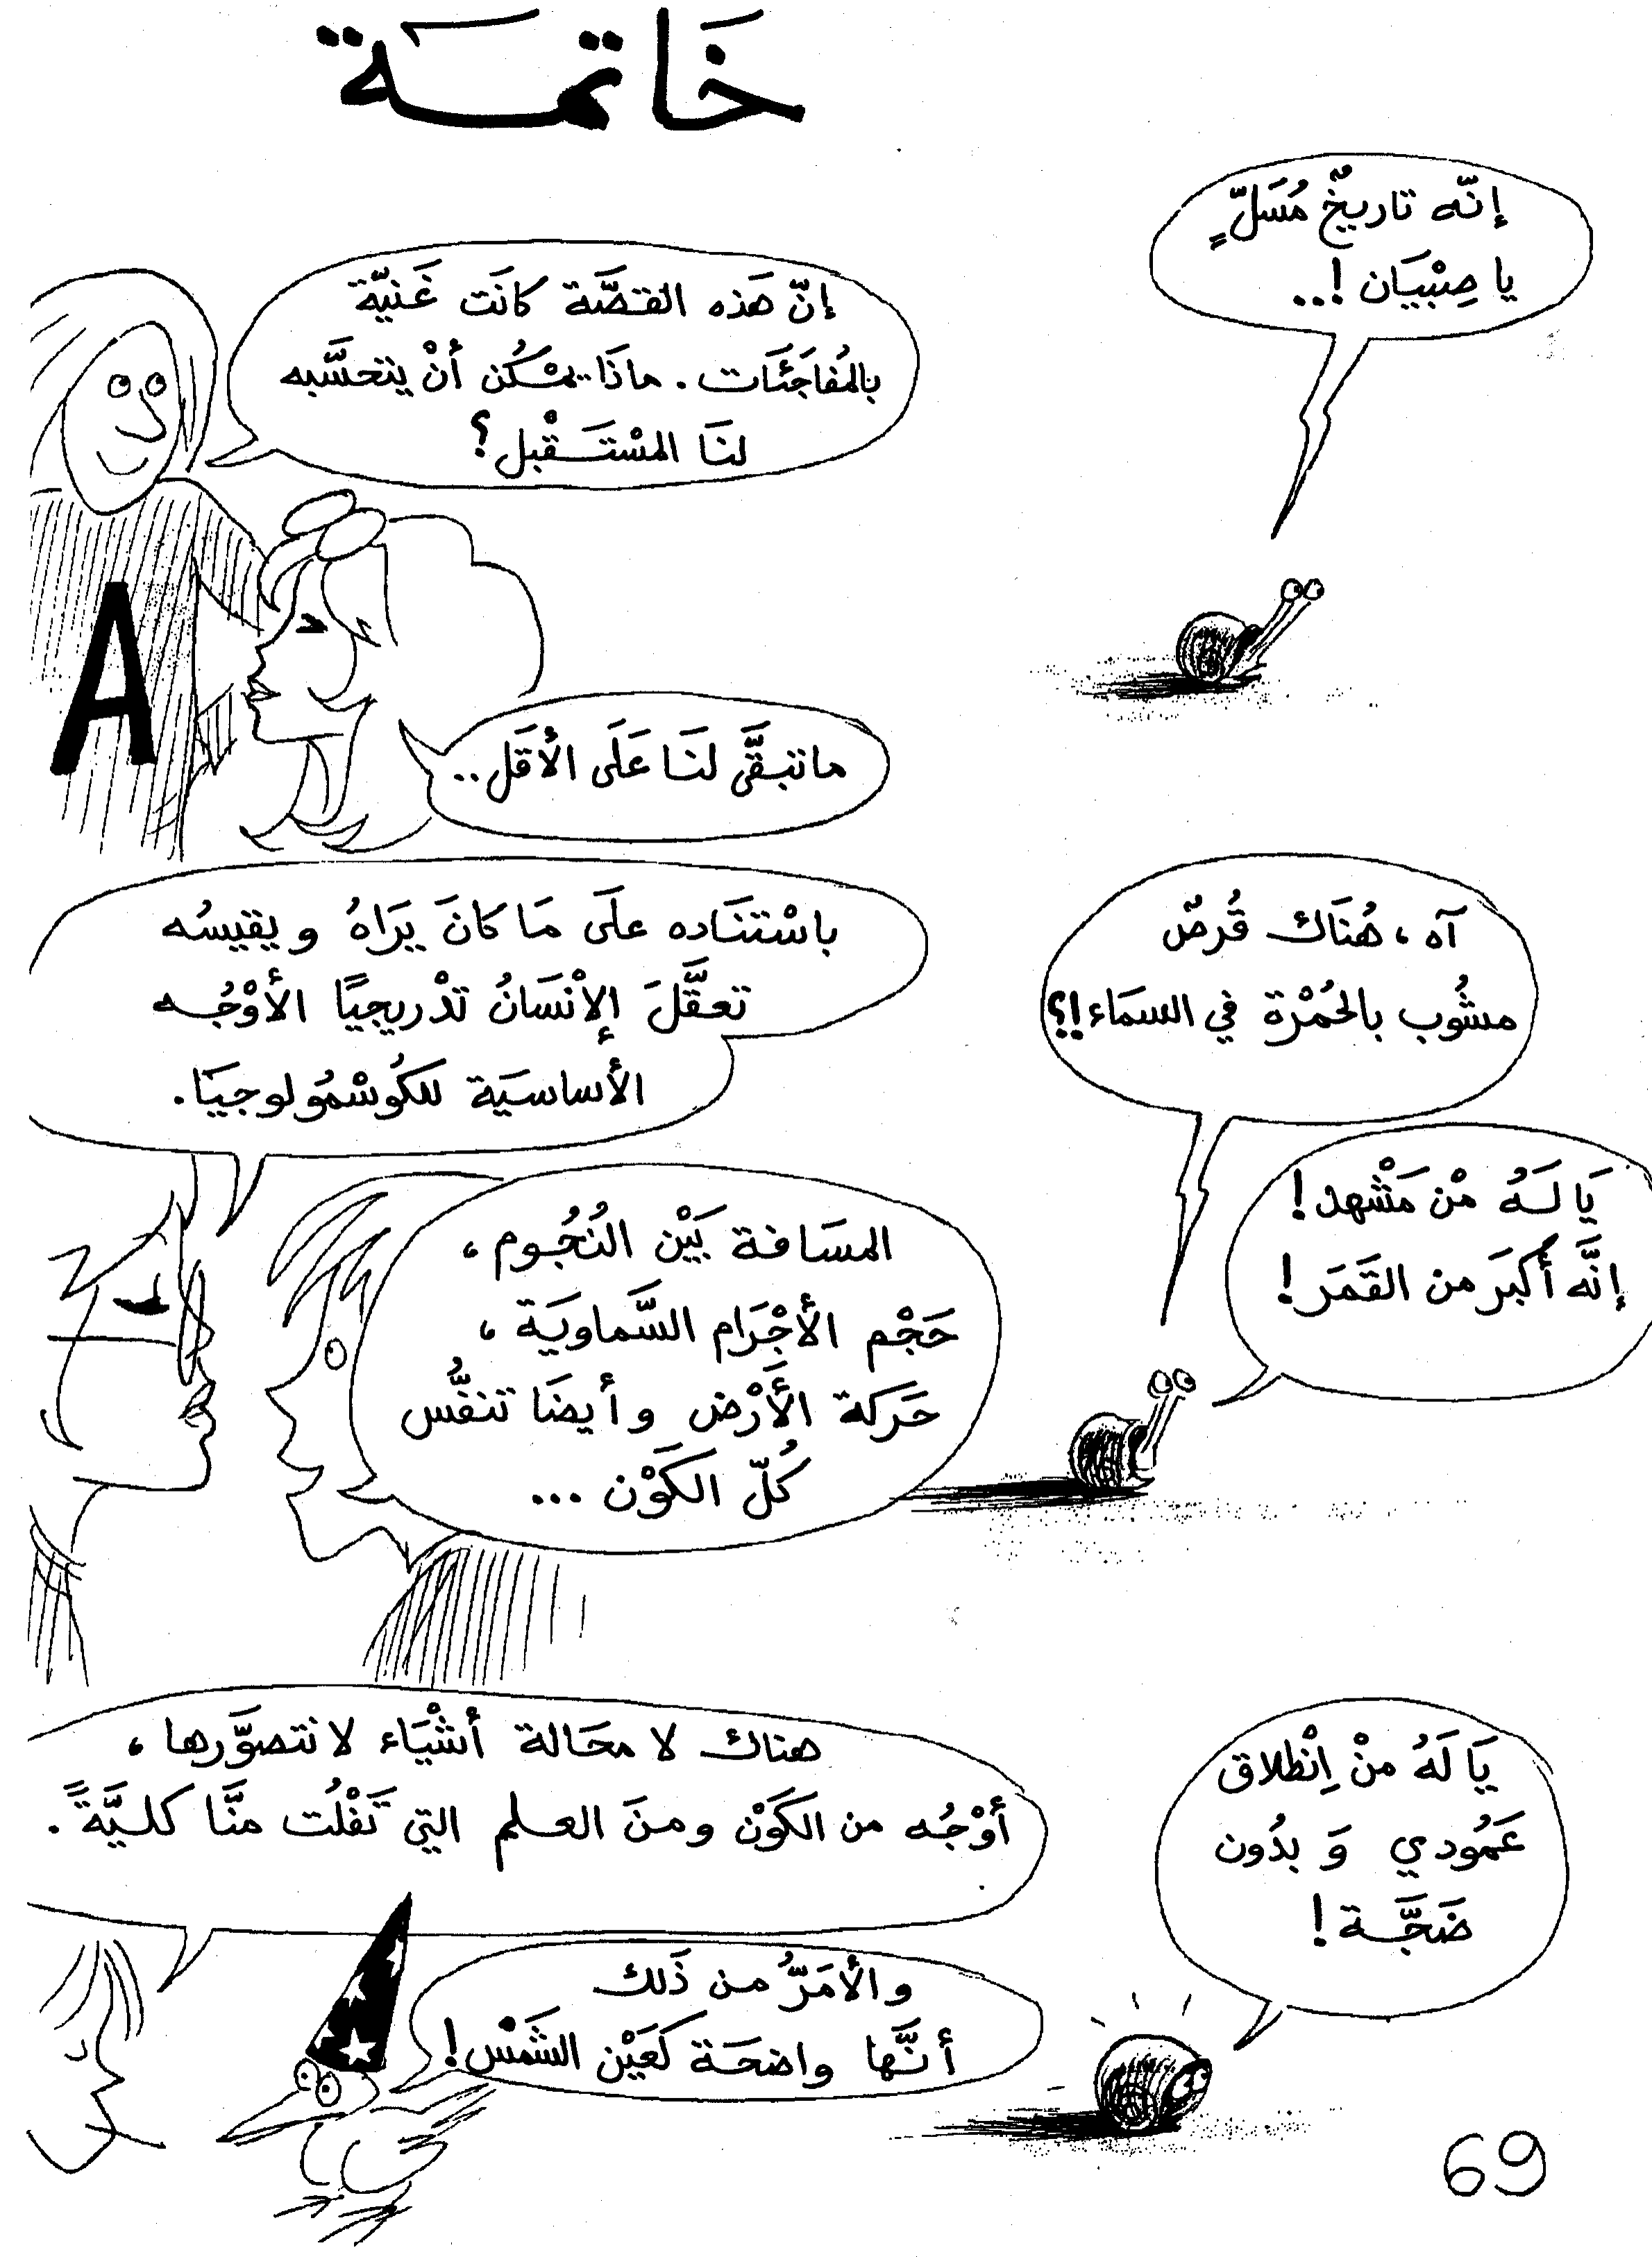 خَاتمَة
إنّه تاريخٌ مُسَلٍّ
يا صِبْيَان !..
إنّ هَذه القصَّة كانَت غَنيّة
بالمُفاجَئَات . ماذَا يمْكُن أنْ يتحسَّبه
لنَا المسْتَقْبل ؟
ماتبَقَّى لنَا عَلَى الأقَل ..
آه ، هُنَاك قُرصٌ
مشُوب بالحُمْرة في السمَاء !؟
يَا لَهُ منْ مَشْهد !
إنَّه أكبَر من القَمَر !
باسْتنَاده علَى مَا كانَ يَرَاهُ ويقيسُه
تعقَّلَ الإنْسَانُ تدْريجيًا الأوْجُه
الأساسيَة للكُوسْمُولوجيَا .
المسَافة بَيْن النُجُوم ،
حَجْم الأجْرَام السَّماويَة ،
حَركة الأرْض وأيضَا تنفُّس
كُلّ الكَوْن ...
يَا لَهُ منْ اِنْطلاق
عَمُودي وَ بدُون
ضَجَّة !
هناك لا محَالة أشْيَاء لا نتصوَّرها ،
أوْجُه من الكَوْن ومنَ العلم التي تَفْلُت منَّا كليَّةً .
والأمَرُّ من ذَلك
أنَّها واضحَة كَعَيْن الشَمْس !
A
69